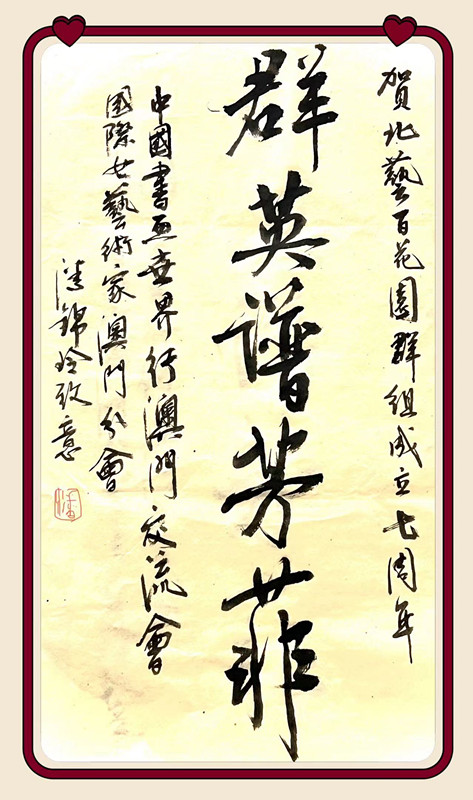 賀北藝百花園群組成立七周年
群英谱芳菲
中國書画世界行澳門交流會
國際女藝術家澳門分會
潘錦玲致意
潘